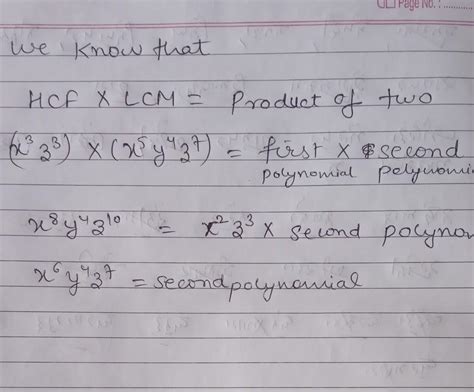 Page No. :
We know that
HCF × LCM = Product of two
(x³ z³) × (x⁵ y⁴ z⁷) = first × second
polynomial polynomi
x⁸ y⁴ z¹⁰ = x² z³ × second polynom
x⁶ y⁴ z⁷ = second polynomial